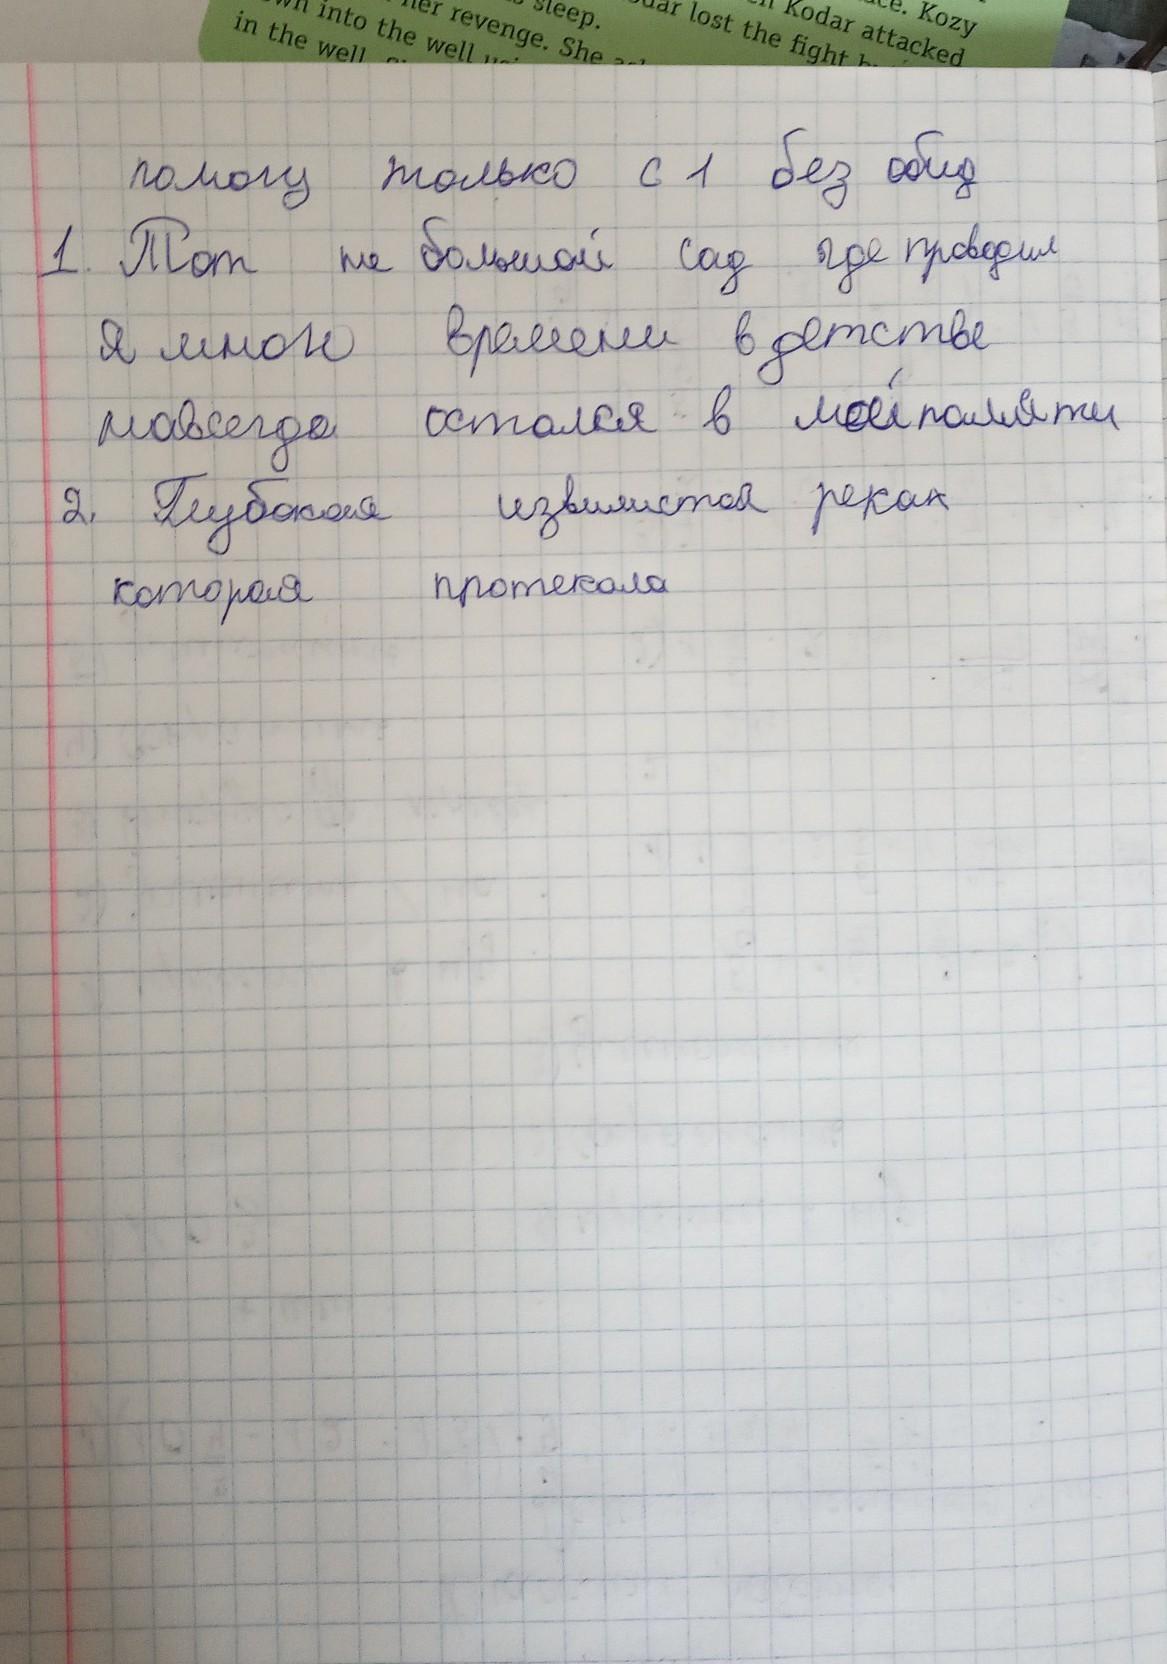 ace. Kozy
s sleep. odar lost the fight Kodar attacked
own into her revenge. She
in the well
помогу только с 1 без обид
1. Тот не большой сад где проводил
я много времени в детстве
навсегда остался в моей памяти
2. Глубокая извилистая река
которая протекала